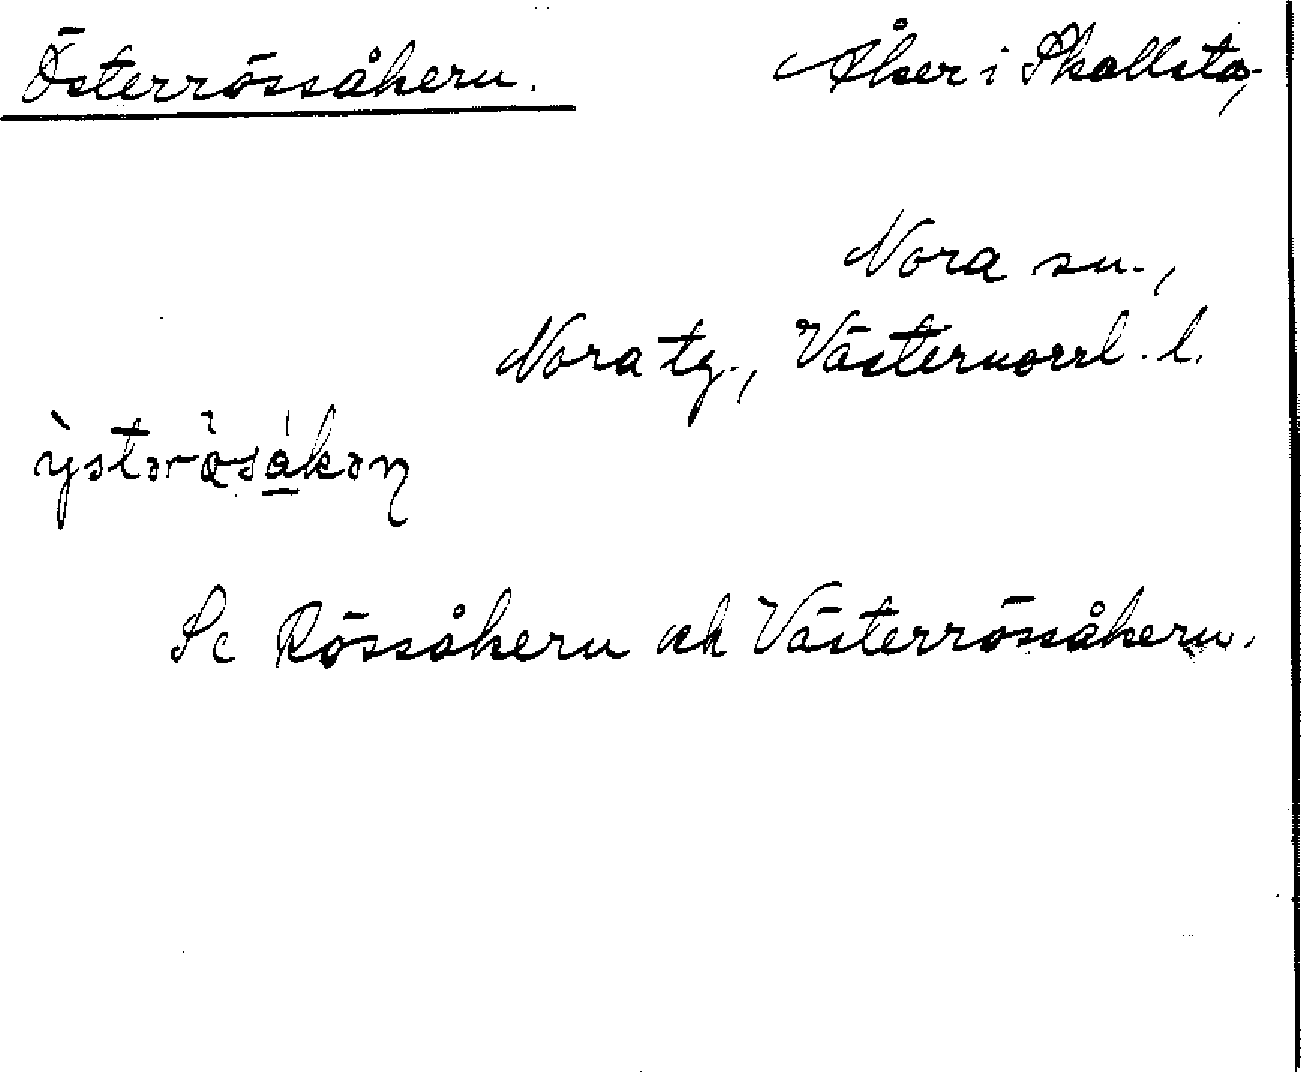 Österrössåkern.
Åker i Skallsta,
Nora sn.,
Nora tg., Västernorrl. l.
Se Rössåkern och Västerrössåkern.